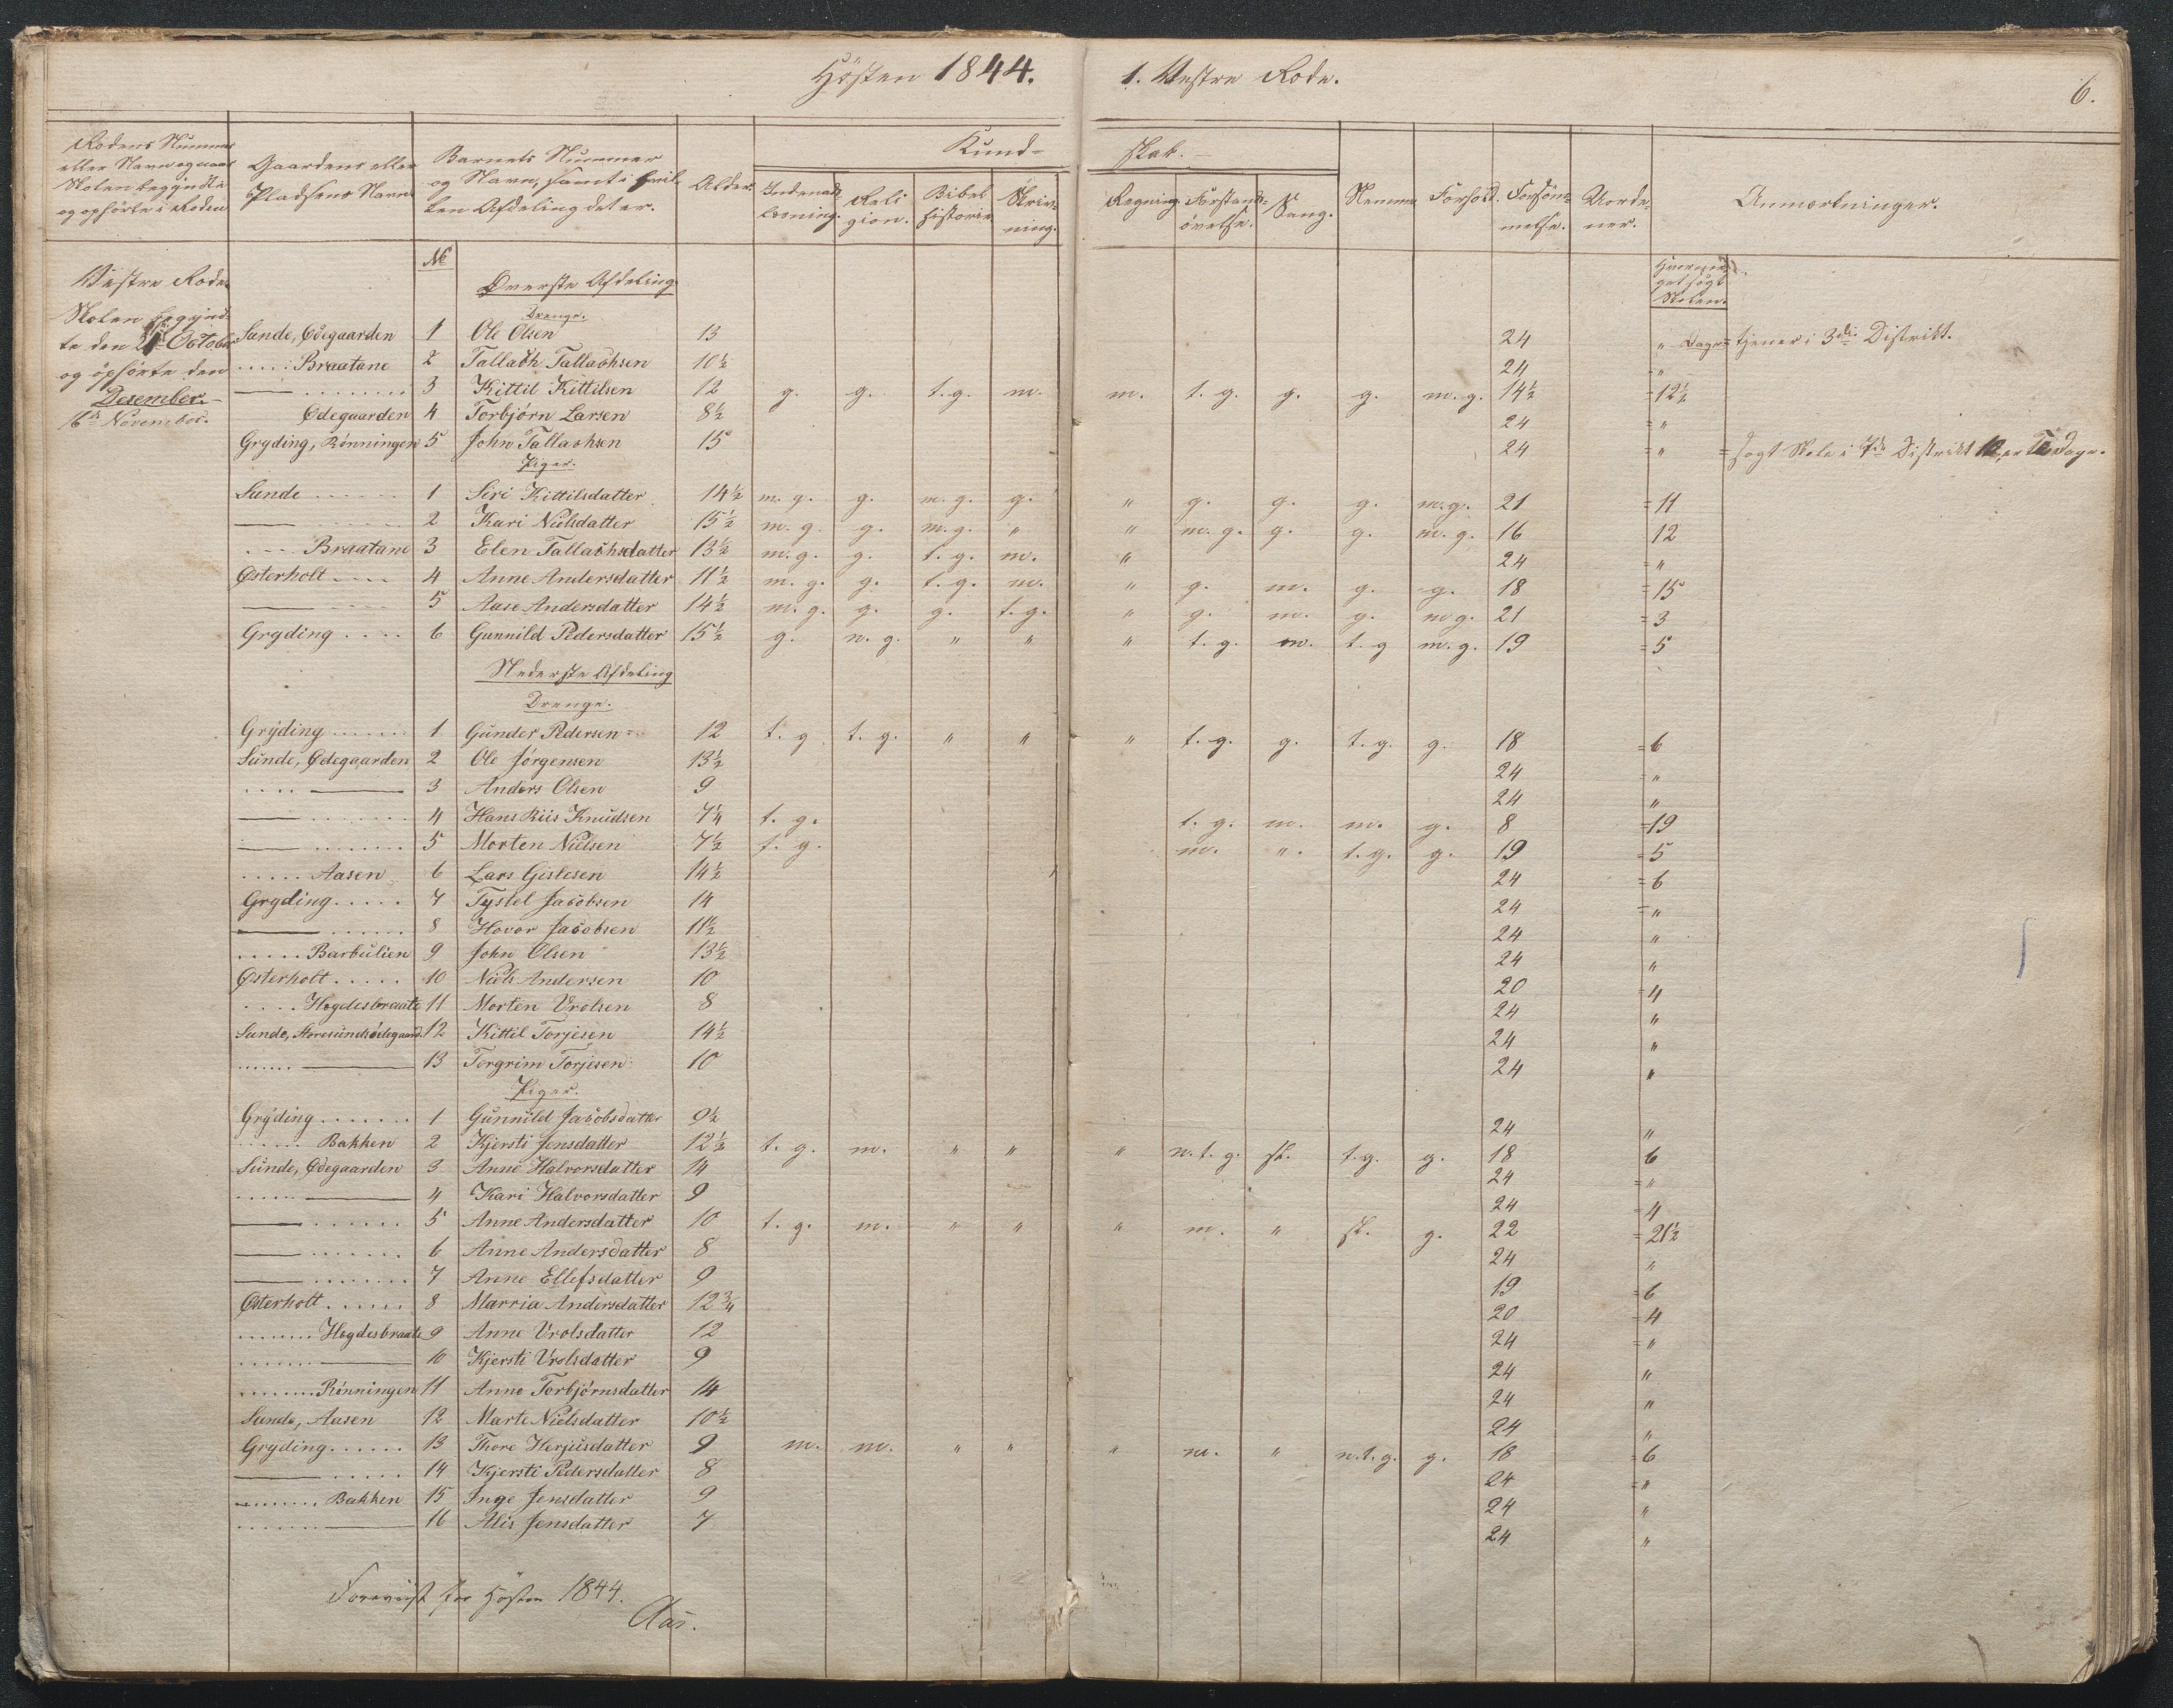 Hösten 1844. 1. Vestre Rode. 6.
Rodens Nummer eller Navn og naar Skolen begyndte og ophörte i Roden
Gaardens eller Pladsens Navn.
Barnets Nummer og Navn, samt i hvilken Afdeling det er.
Alder.
Kundskab.
Indenadlæsning. Religion. Bibelhistorie. Skrivning. Regning. Forstandsövelse. Sang.
Nemme. Forhold. Forsömmelse. Uordener. Anmærkninger.
No
Hvormeget sögt Skolen.
Vestre Rode.
Skolen begyndte den 21 October og ophörte den
Desember.
16de November.
Överste Afdeling
Drenge.
Sunde, Ödegaarden 1 Ole Olsen 13 24 " Dage = tjener i 3die Distrikt.
..... Braatane 2 Tallach Tallachsen 10½ 24 "
— ........ 3 Kittil Kittilsen 12 g. g. t.g. m. m. t.g. g. g. m.g. 14½ = 12½
Ödegaarden 4 Torbjörn Larsen 8½ 24 = "
Gryding, Rönningen 5 John Tallachsen 15 24 = " = sögt Skole i 7de Distrikt
Piger.
Sunde ...... 1 Siri Kittilsdatter 14½ m.g. g. m.g. g. " g. g. g. m.g. 21 = 11
— ...... 2 Kari Nielsdatter 15½ m.g. g. m.g. " " m.g. g. g. m.g. 16 12
.... Braatane 3 Elen Tallachsdatter 13½ m.g. g. t.g. m. " 24 = "
Österholt .... 4 Anne Andersdatter 11½ m.g. g. t.g. m. " g. m. g. g. 18 = 15
— .... 5 Aase Andersdatter 14½ m.g. g. g. t.g. " g. m. g. m g. 21 = 3
Gryding .... 6 Gunnild Pedersdatter 15½ g. n.g. " " " t.g. m. t.g m.g. 19 = 5
Nederste Afdeling
Drenge.
Gryding ....... 1 Gunder Pedersen 12 t.g t.g. " " " t.g. g. t.g. g. 18 = 6
Sunde, Ödegaarden 2 Ole Jörgensen 13½ 24 = "
.... — 3 Anders Olsen 9 24 "
— ....... 4 Hans Riis Knudsen 7¼ t.g. t.g. m. m. g. 8 = 19
— ........ 5 Morten Nielsen 7½ t.g. m. ". t.g. g. 19 = 5
..... Aasen 6 Lars Gislesen 14½ 24 = 6
Gryding..... 7 Tystel Jacobsen 14 24 = "
— ...... 8 Hovor Jacobsen 11½ 24 "
..... Barbulien 9 John Olsen 13½ 24 "
Österholt ..... 10 Niels Andersen 10 20 = 4
.... Högdesbraate 11 Morten Vrolsen 8 24 "
Sunde, Storesundsödegaard. 12 Kittil Torjesen 14½ 24 "
....... — 13 Torgrim Torjesen 10 24 "
Piger.
Gryding ....... 1 Gunnild Jacobsdatter 9½ 24 "
...... Bakken 2 Kjersti Jensdatter 12½ t.g. m. " " " n.t.g. sl. t.g. g. 18 6
Sunde, Ödegaarden 3 Anne Halvorsdatter 14 24 = "
...... — 4 Kari Halvorsdatter 9 24 = 4
— ...... 5 Anne Andersdatter 10 t.g. m. " " " m. " sl. g. 22 = 21½
— ....... 6 Anne Andersdatter 8 24 "
— ........ 7 Anne Ellefsdatter 9 19 = 6
Österholt ...... 8 Marria Andersdatter 12¾ 20 = 4
........ Högdesbraate 9 Anne Vrolsdatter 12 24 = "
....... — 10 Kjersti Vrolsdatter 9 24 "
........ Rönningen 11 Anne Torbjörnsdatter 14 24 "
Sunde, Aasen 12 Marte Nielsdatter 10½ 24 "
Gryding...... 13 Thore Herjusdatter 9 m. m. " " " m. " n.t.g. g. 18 = 6
— ..... 14 Kjersti Pedersdatter 8 24 = "
........ Bakken 15 Inge Jensdatter 9 24 "
....... — 16 Alis Jensdatter 7 24 "
Foreviist for Hösten 1844.
Aas.